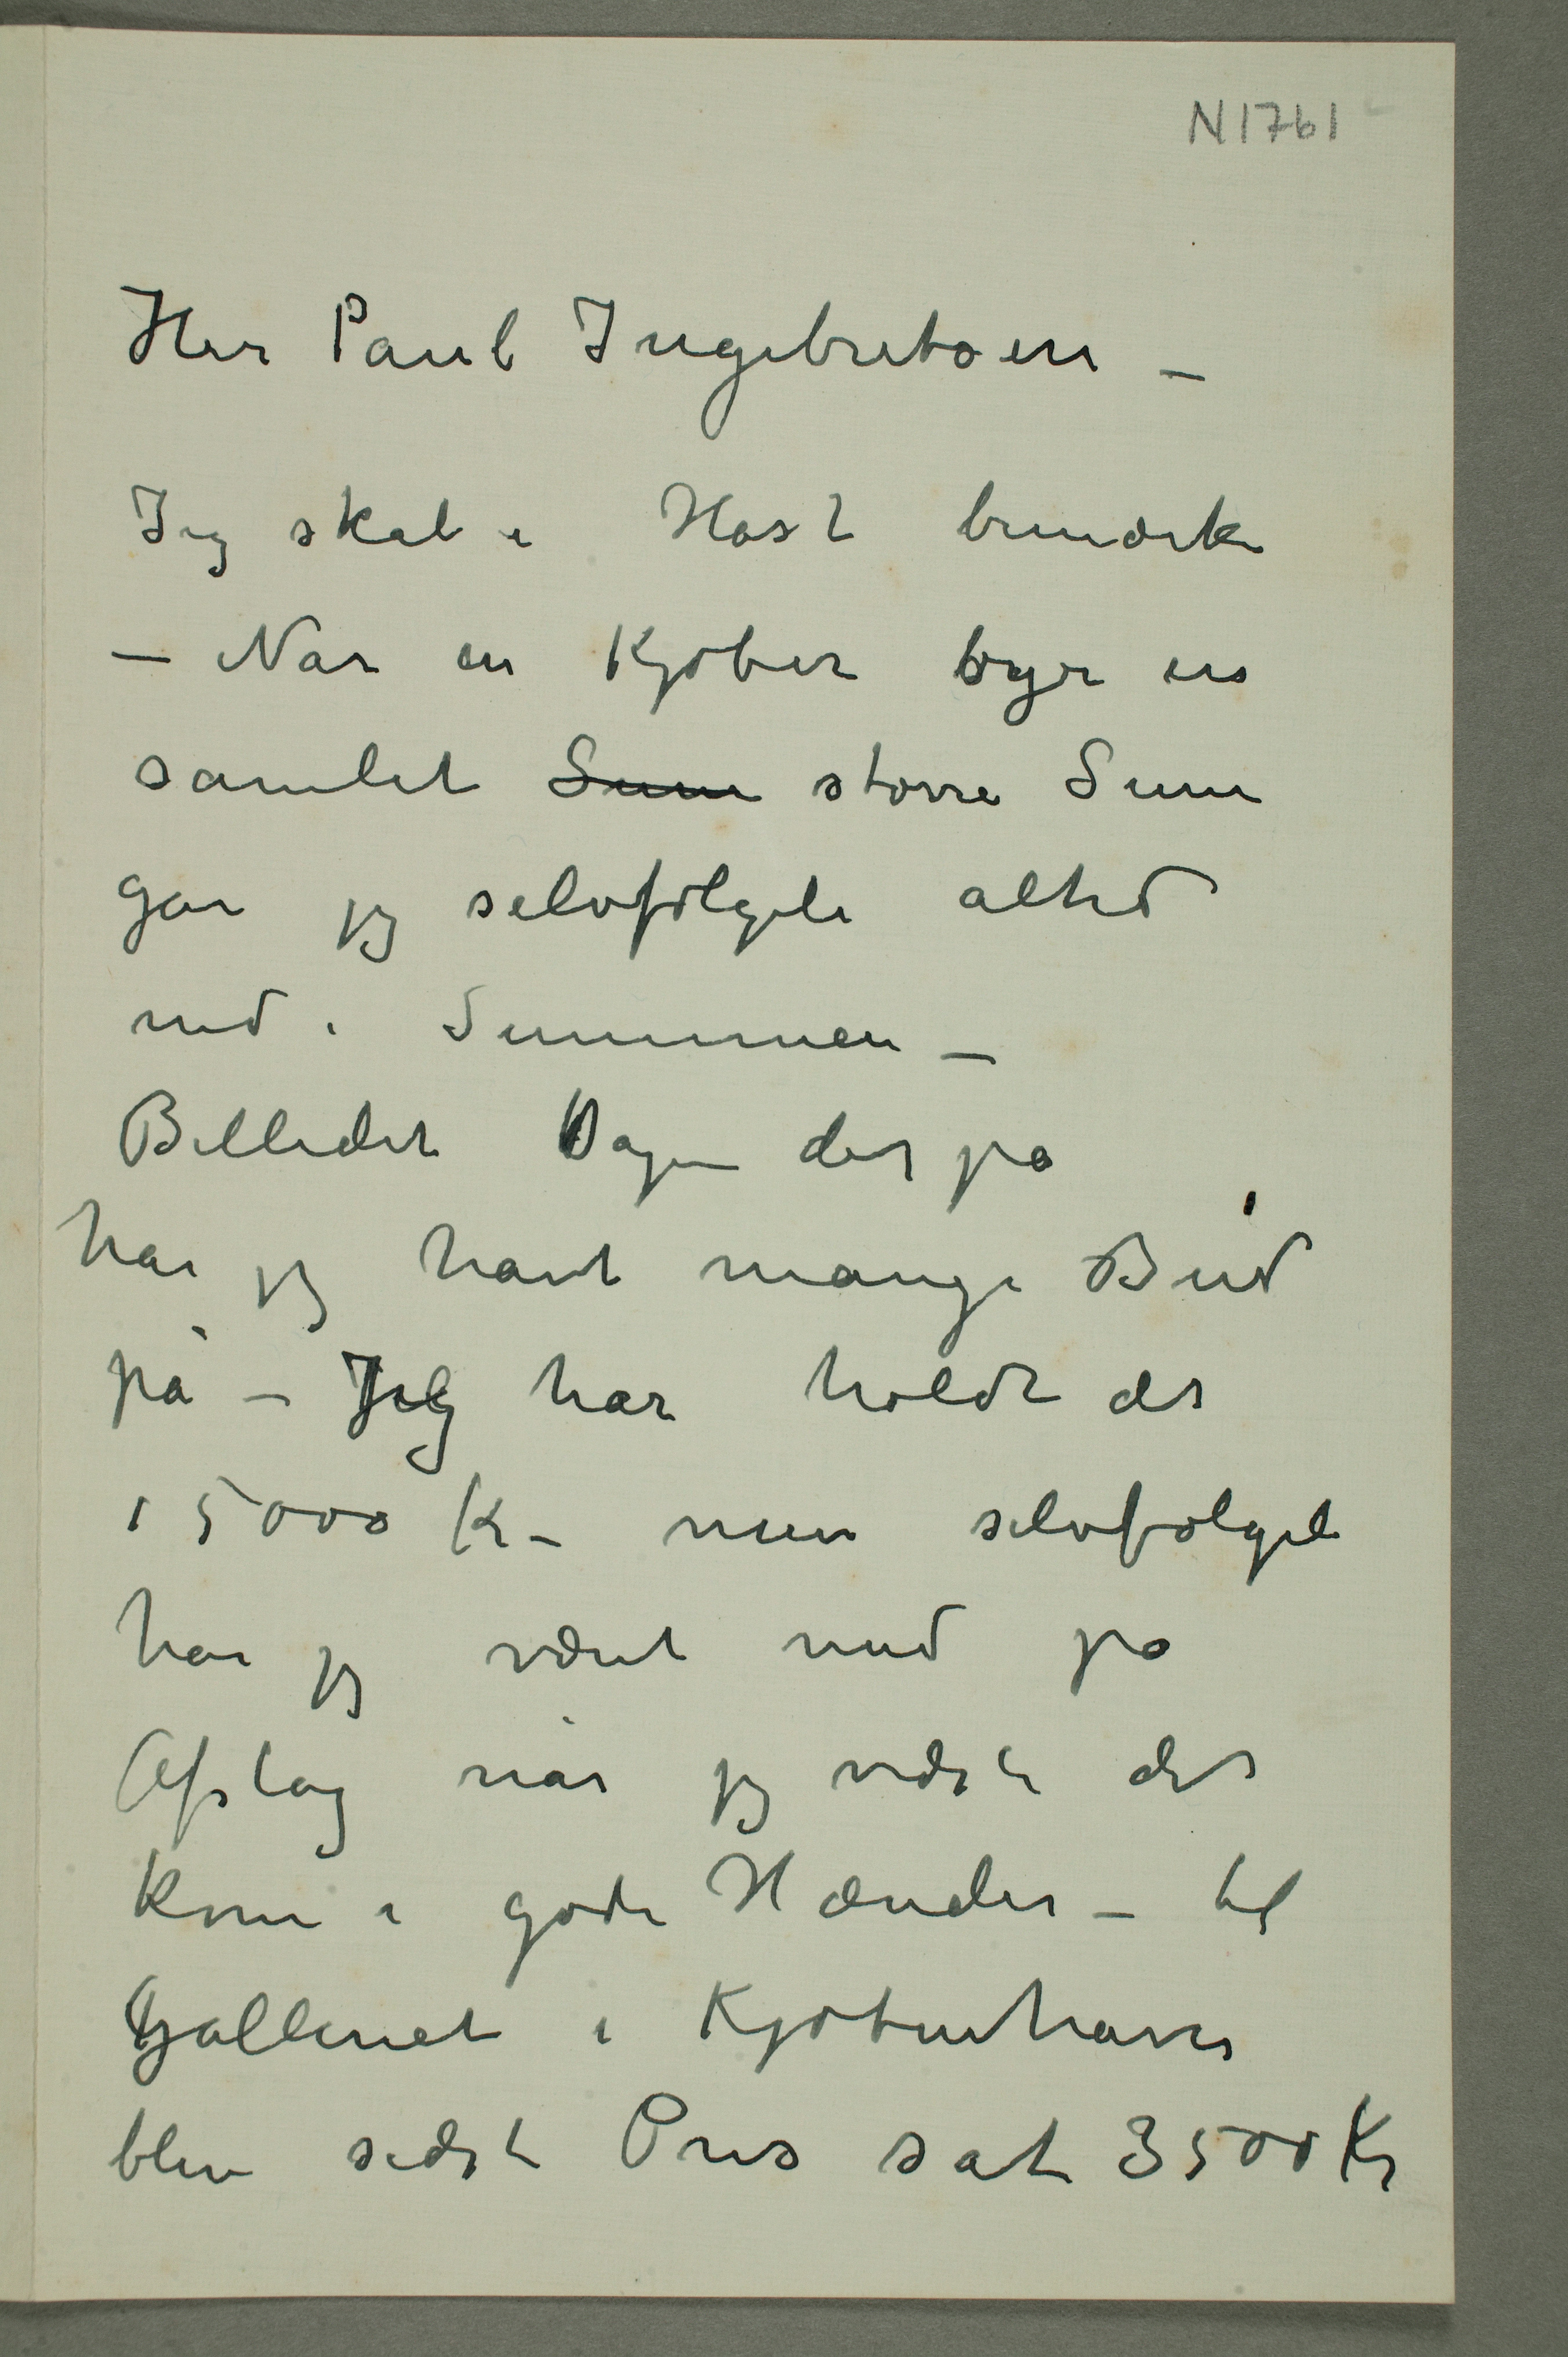 N 1761
Herr Paul Ingebretsen –
Jeg skal i Hast bemærke
– Når en Kjøber byr en
samlet Sum større Sum
går jeg selvfølgeli altid
ned i Summen –
Billedet Dagen derpå
har jeg havt mange Bud
på – Jeg har holdt det
i 5000 Kr – men selvfølgeli
har jeg været med på
Afslag når jeg vidste det
kom i gode Hænder – til
Galleriet i Kjøbenhavn
blev sidste Pris sat 3500 Kr